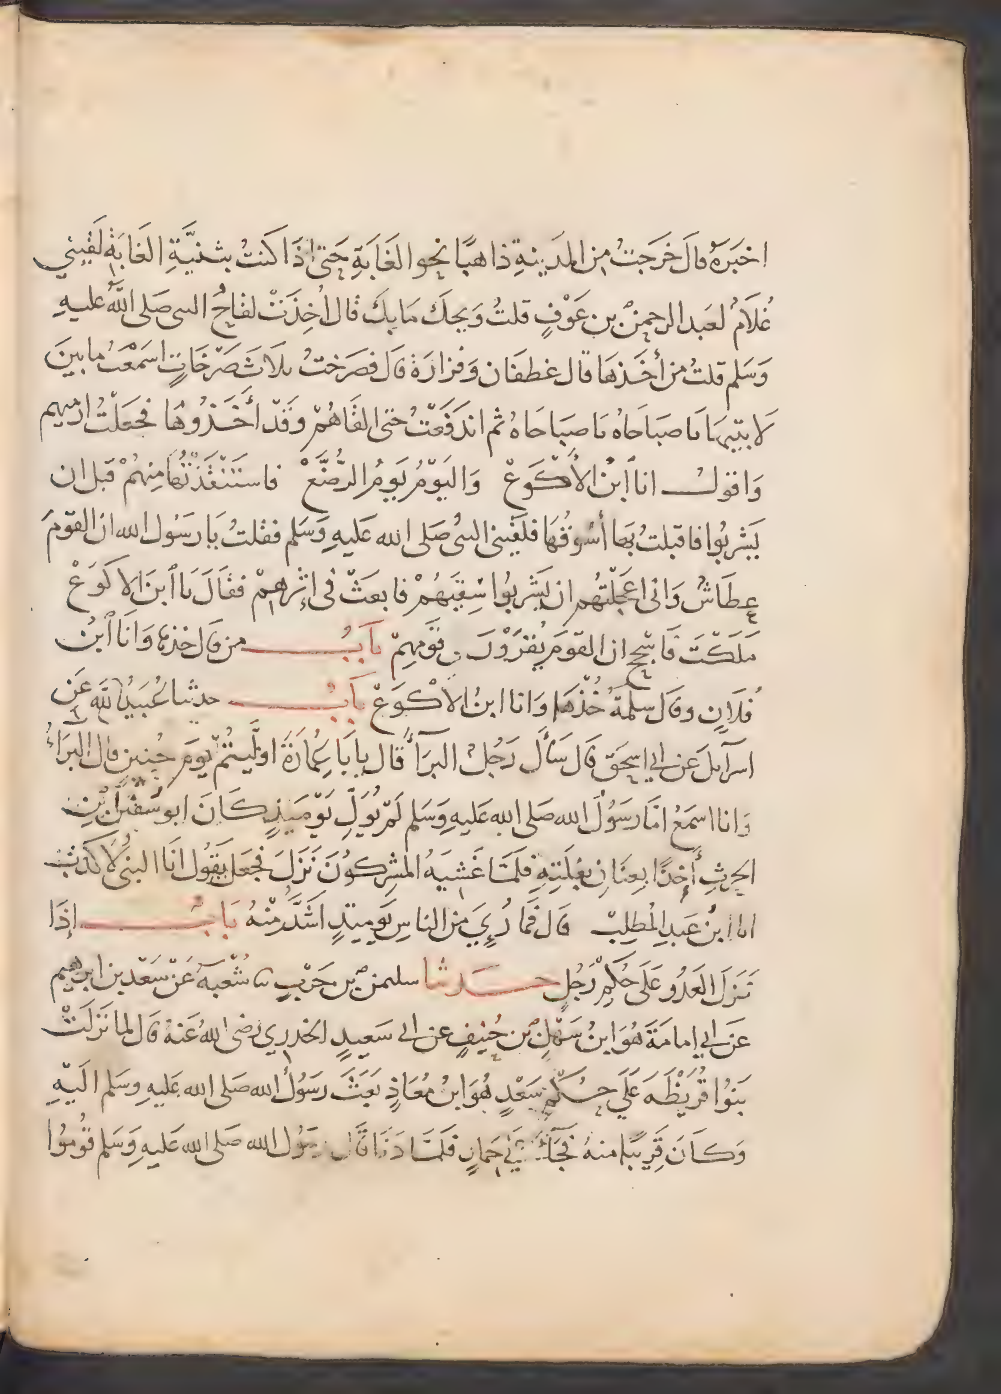 اخبَرَهُ قالَ خَرجتُ مِن المدَينةِ ذاهبًا نحوالغَابَةِ حَتى اذَا كنتُ بثنيَّةِ الغَابَةِ لَقيَني
غُلَامٌ لعَبد الرحمٰن بن عَوْفٍ قلتُ وَيحكَ مَا بِكَ قال أُخِذَتْ لقاحُ النبى صَلى اللَّهُ عليهِ
وَسَلم قلتُ مَن أخَذهَا قال غطفَان وَفزارَة قالَ فصَرختُ ثلاثَ صَرْخَاتٍ اسمَعْتُ ما بَينَ
لابتَيهَا يَا صَباحَاهُ يَا صَبَاحَاهُ ثم اندَفَعْتُ حَتى القَاهُمْ وَقَدْ أخَذُوهَا فجعَلْتُ ارْميهِم
وَاقولُ انا اَبنُ الْأكْوَعْ وَاليَوْمُ يَومُ الرُّضَّعْ فاستَنْقَذْتُهَا مِنهُمْ قبل ان
يَشرَبُوا فاقبلتُ بهَا أسُوقُهَا فلقيَنى النبىُ صَلى الله عَليهِ وَسَلم فقلتُ يَا رَسُول الله ان القومَ
عِطَاشٌ وَانى اعجَلْتهُم ان يَشربُوا سِقيَهُمْ فابعَثْ فى اِثرهِمْ فقَالَ يَا اَبنَ الاكوَعْ
مَلَكْتَ فَاسْجِح ان القومَ يُقرَوْنَ فى قَومِهِمْ بَابُ من قال خذها وَانَا اَبنُ
فُلَانٍ وقالَ سَلمَةُ خُذْهَا وَانا ابنُ الأكْوَعْ بَابُ حدثنا عُبَيدُ اللَّهِ عَن
اسرآئيلَ عَن ابي اسحَقَ قالَ سَألَ رَجُلٌ البَرآءَ فقال يا بَا عُمَارَةَ اوَلَّيتُمْ يَومَ حُنينٍ قال البَرَآءُ
وَانا اسمَعُ امّا رَسُولُ الله صَلى الله عَليهِ وَسَلم لَمْ يُوَلِّ يَوْمَئِذٍ كانَ ابو سُفيٰنَ بنِ
الحرثِ أخِذًا بعنَانِ بَغْلَتِهِ فلمَّا غَشيَهُ المشرِكُونَ نَزَلَ فجعَل يَقُولُ انَا النبىُ لَا كَذِبْ
انا ابنُ عَبدِ المطلِبْ قالَ فمَا رُئِيَ مِن الناسِ يَومَئِذٍ اشَدُّ مِنْهُ بَابُ إذَا
نَزلَ العَدُو عَلَى حُكمِ رَجُلٍ حَدثنا سليمٰن بن حَرْبٍ نا شُعْبَةُ عَنْ سَعْد بن ابراهيم
عَن ابي اِمامَةَ هُوَ ابنُ سَهْلِ بن حُنيَفٍ عن ابى سَعيدٍ الخدرِي رضى اللهُ عَنهُ قال لما نَزلَتْ
بَنُوا قُرَيْظَةَ عَلَى حُكْمِ سَعْدٍ هُوَ ابنُ مُعَاذٍ بَعَثَ رَسُولُ الله صَلى الله عَليهِ وَسَلم اليْهِ
وَكانَ قَرِيبًا منهُ فجَآءَ عَلَى حِمارٍ فلمَّا دَنَا قالَ رسُول الله صَلى الله عَليهِ وَسَلم قُومُوا